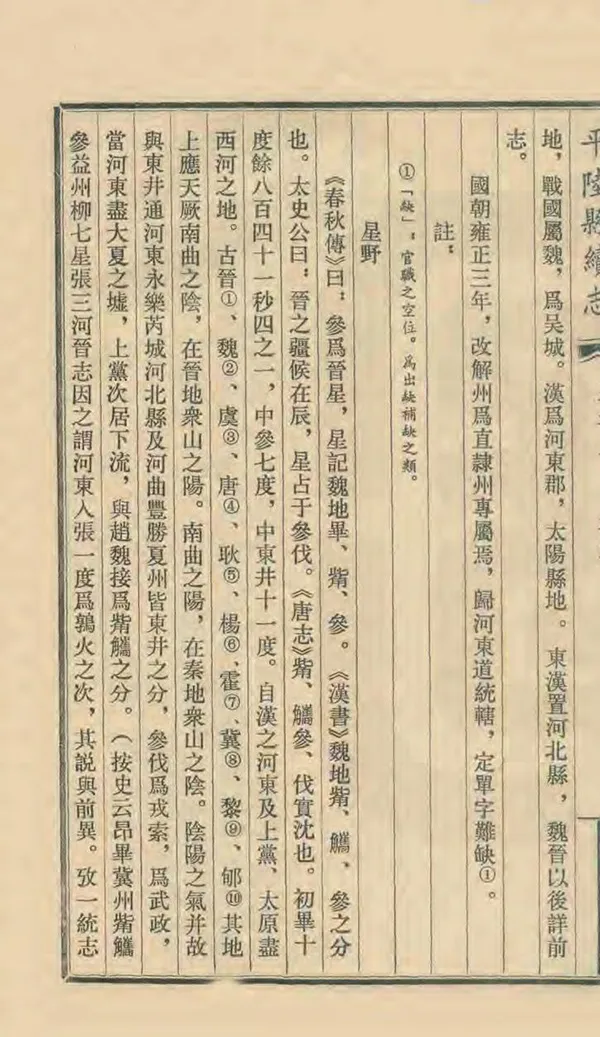 平陸縣續志
地，戰國屬魏，爲吴城。漢爲河東郡，太陽縣地。東漢置河北縣，魏晉以後詳前
志。
國朝雍正三年，改解州爲直隸州專屬焉，歸河東道統轄，定單字難缺①。
註：
①「缺」：官職之空位。爲出缺補缺之類。
星野
《春秋傳》曰：參爲晉星，星記魏地畢、觜、參。《漢書》魏地觜、觿、參之分
也。太史公曰：晉之疆候在辰，星占于參伐。《唐志》觜、觿參、伐實沈也。初畢十
度餘八百四十一秒四之一，中參七度，中東井十一度。自漢之河東及上黨、太原盡
西河之地。古晉①、魏②、虞③、唐④、耿⑤、楊⑥、霍⑦、冀⑧、黎⑨、郇⑩其地
上應天厥南曲之陰，在晉地衆山之陽。南曲之陽，在秦地衆山之陰。陰陽之氣并故
與東井通河東永樂芮城河北縣及河曲豐勝夏州皆東井之分，參伐爲戎索，爲武政，
當河東盡大夏之墟，上黨次居下流，與趙魏接爲觜觿之分。（按史云昂畢冀州觜觿
參益州柳七星張三河晉志因之謂河東入張一度爲鶉火之次，其説與前異。攷一統志